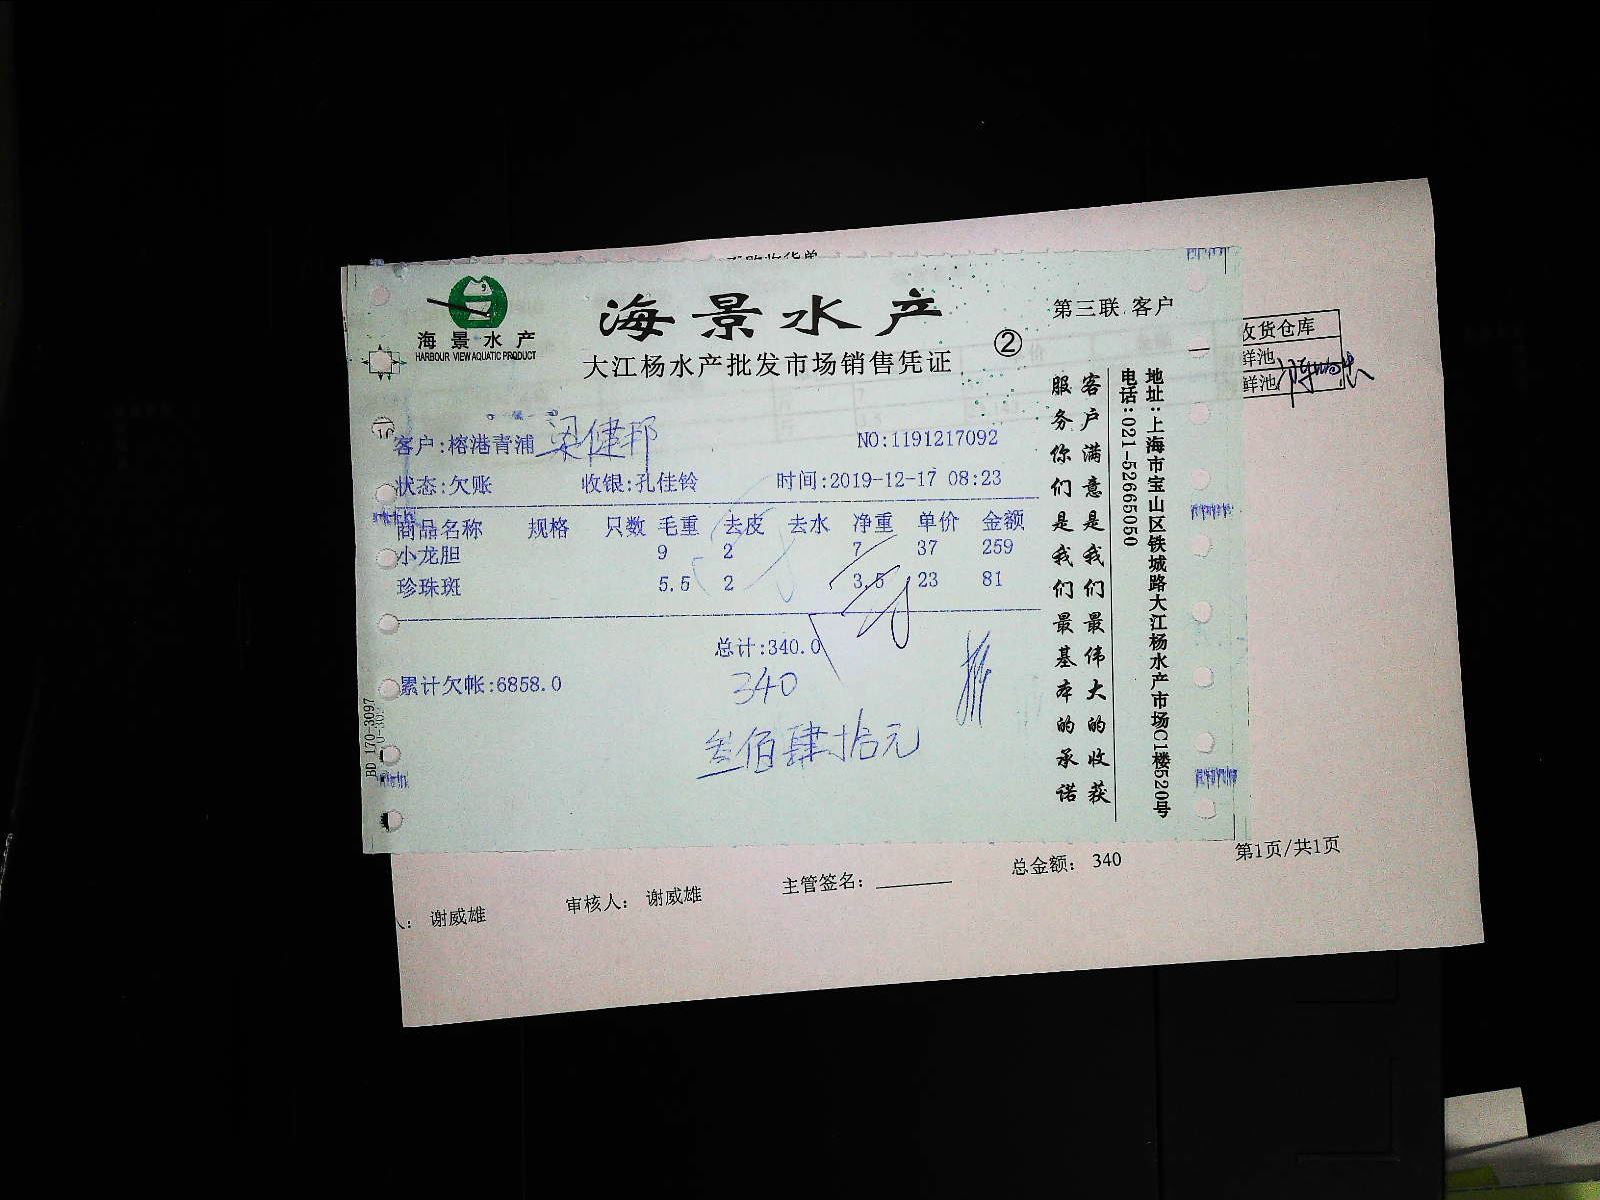 海景水产
HARBOUR VIEW AQUATIC PRODUCT
海景水产
大江杨水产批发市场销售凭证
②
第三联 客户
客户:榕港青浦 梁健邦
NO:1191217092
状态:欠账 收银:孔佳铃 时间:2019-12-17 08:23
商品名称 规格 只数 毛重 去皮 去水 净重 单价 金额
小龙胆 9 2 7 37 259
珍珠斑 5.5 2 3.5 23 81
总计:340.0
累计欠帐:6858.0
340
叁佰肆拾元
客户满意是我们最伟大的收获
服务你们是我们最基本的承诺
地址:上海市宝山区铁城路大江杨水产市场C1楼520号
电话:021-52665050
BD 170-3097
收货仓库
鲜池
鲜池
总金额: 340
第1页/共1页
谢威雄
审核人: 谢威雄
主管签名: